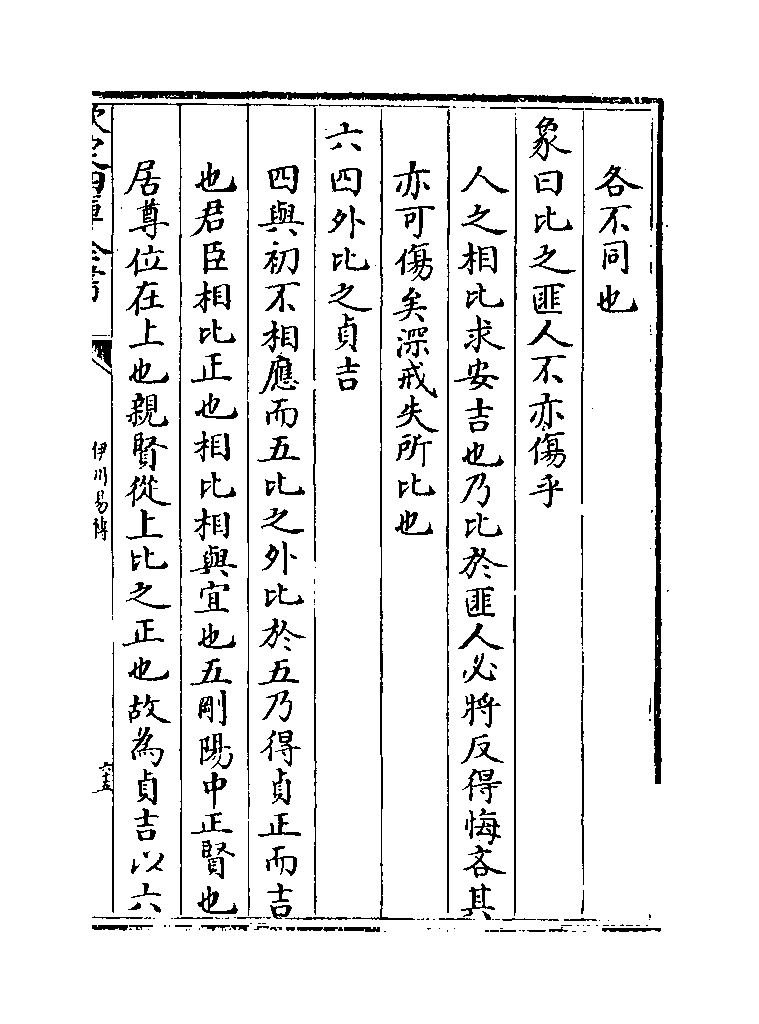 各不同也
象曰比之匪人不亦傷乎
人之相比求安吉也乃比於匪人必將反得悔吝其
亦可傷矣深戒失所比也
六四外比之貞吉
四與初不相應而五比之外比於五乃得貞正而吉
也君臣相比正也相比相與宜也五剛陽中正賢也
居尊位在上也親賢從上比之正也故為貞吉以六
欽定四庫全書
伊川易傳
六十五